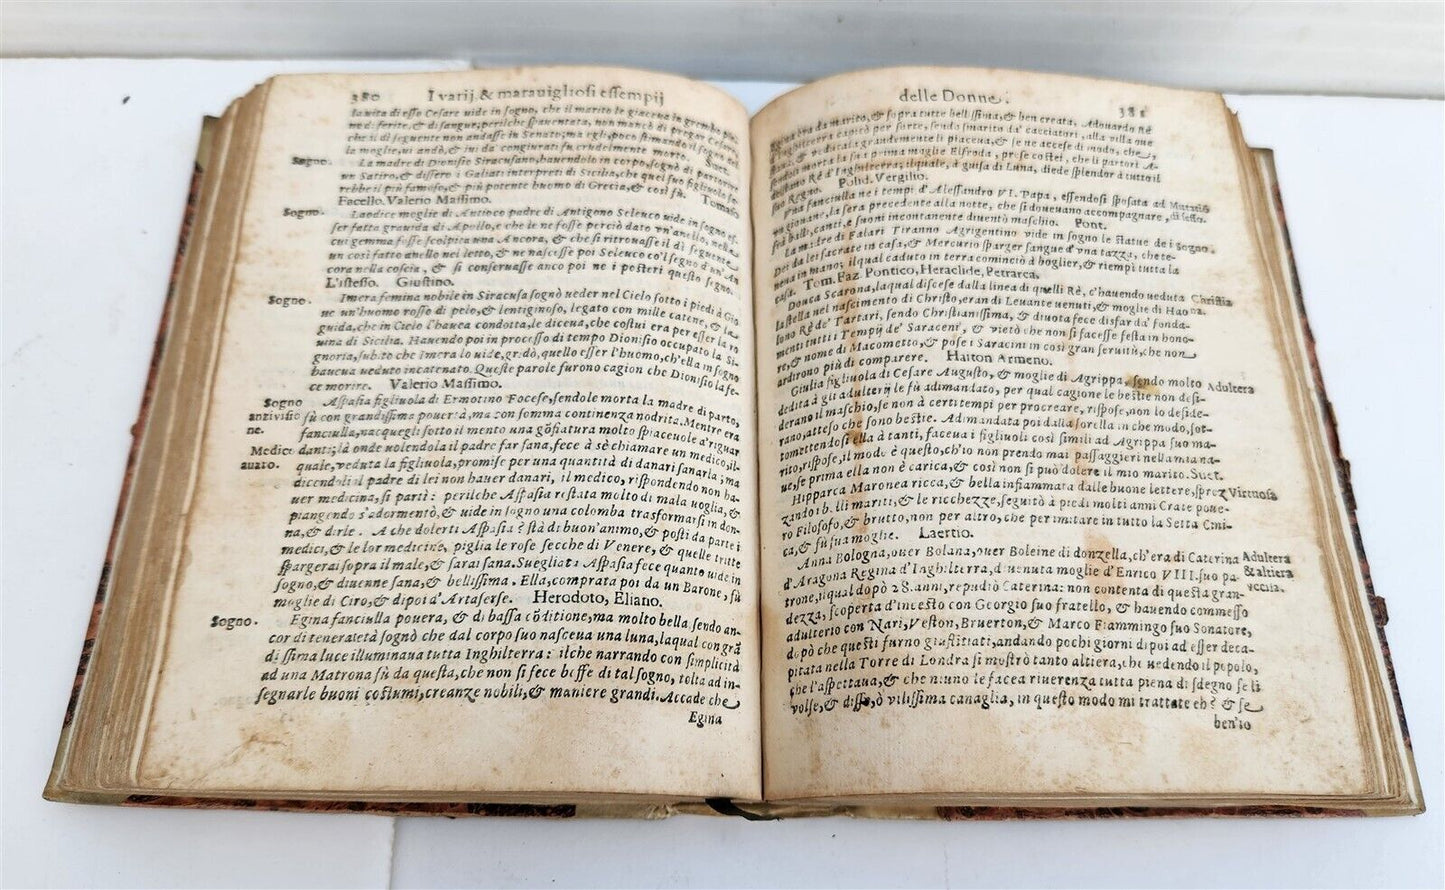 380 I varij, & marauigliosi essempij
la uita di esso Cesare uide in sogno, che il marito le giaceua in grembo pie-
no di ferite, & di sangue; perilche spauentata, non mancò di pregar Cesare
che il dì seguente non andasse in Senato; ma egli, poco stimando il sogno del
la moglie, ui andò, & iui da congiurati fu crudelmente morto. Suet.
Sogno. La madre di Dionisio Siracusano, hauendolo in corpo, sognò di partorire
un Satiro, & dissero i Galiati interpreti di Sicilia, che quel suo figliuolo sa-
rebbe il più famoso, & più potente huomo di Grecia, & così fù. Tomaso
Facello. Valerio Massimo.
Sogno. Laodice moglie di Antioco padre di Antigono Seleuco uide in sogno es-
ser fatta grauida di Apollo, e che le ne fosse perciò dato vn'anello, nella
cui gemma fosse scolpita una Ancora, & che si ritrouasse il dì seguente
un così fatto anello nel letto, & ne nascesse poi Seleuco co'l segno d'un'An
cora nella coscia, & si conseruasse anco poi ne i posteri questo segno.
L'istesso. Giustino.
Sogno. Imera femina nobile in Siracusa sognò ueder nel Cielo sotto i piedi à Gio
ue un'huomo rosso di pelo, & lentiginoso, legato con mille catene, & la
guida, che in Cielo l'hauea condotta, le diceua, che costui era per esser la ro
uina di Sicilia. Hauendo poi in processo di tempo Dionisio occupato la Si-
gnoria, subito che Imera lo uide, gridò, quello esser l'huomo, ch'ella in sogno
haueua ueduto incatenato. Queste parole furono cagion che Dionisio la fe-
ce morire. Valerio Massimo.
Sogno Aspasia figliuola di Ermotino Focese, sendole morta la madre di parto,
antivisio fù con grandissima pouertà, ma con somma continenza nodrita. Mentre era
ne. fanciulla, nacquegli sotto il mento una gōfiatura molto spiaceuole à riguar
Medico danti; là onde uolendola il padre far sana, fece à sè chiamare un medico, il-
auato. quale, veduta la figliuola, promise per una quantità di danari sanarla; ma
dicendoli il padre di lei non hauer danari, il medico, rispondendo non ha-
uer medicina, si partì: perilche Aspasia restata molto di mala uoglia, &
piangendo s'adormentò, & uide in sogno una colomba trasformarsi in don-
na, & dirle. A che dolerti Aspasia? stà di buon'animo, & posti da parte i
medici, & le lor medicine, piglia le rose secche di Venere, & quelle tritte
spargerai sopra il male, & sarai sana. Suegliata Aspasia fece quanto uide in
sogno, & diuenne sana, & bellissima. Ella, comprata poi da un Barone, fù
moglie di Ciro, & dipoi d'Artaserse. Herodoto, Eliano.
Sogno. Egina fanciulla pouera, & di bassa cōditione, ma molto bella sendo an-
cor di tenera età sognò che dal corpo suo nasceua una luna, laqual con grā
dissima luce illuminaua tutta Inghilterra: ilche narrando con simplicità
ad una Matrona fù da questa, che non si fece beffe di tal sogno, tolta ad in-
segnarle buoni costumi, creanze nobili, & maniere grandi. Accade che
Egina
delle Donne. 381
Egina era da marito, & sopra tutte bellissima, & ben creata, Adouardo Rè
d'Inghilterra capitò per sorte, sendo smarito da' cacciatori, alla uilla oue
era, & ueduta grandemente li piacque, & se ne accese di modo, che,
morta la sua prima moglie Elfreda, prese costei, che li partorì A-
delstano Rè d'Inghilterra; ilquale, à guisa di Luna, diede splendor à tutto il
suo Regno. Polid. Vergilio.
Vna fanciulla ne i tempi d'Alessandro VI. Papa, essendosi sposata ad Mutatiō
un giouane, la sera precedente alla notte, che si doueuano accompagnare, di sesso.
frà balli, canti, e suoni incontanente diuentò maschio. Pont.
La madre di Falari Tiranno Agrigentino vide in sogno le statue de i Sogno.
Dei da lei sacrate in casa, & Mercurio sparger sangue d'vna tazza, che te-
neua in mano; il qual caduto in terra cominciò à boglier, & riempì tutta la
casa. Tom. Faz. Pontico, Heraclide, Petrarca.
Douca Scarona, laqual discese dalla linea di quelli Rè, c'hauendo ueduta Christia
la stella nel nascimento di Christo, eran di Leuante uenuti, & moglie di Hao na.
lono Rè de' Tartari, sendo Christianissima, & diuota fece disfar da' fonda-
menti tutti i Tempij de' Saraceni, & vietò che non si facesse festa in hono-
re, & nome di Macometto, & pose i Saracini in così gran seruitù, che non
ardirono più di comparere. Haiton Armeno.
Giulia figliuola di Cesare Augusto, & moglie di Agrippa, sendo molto Adultera
dedita à gli adulterij le fù adimandato, per qual cagione le bestie non desi-
derano il maschio, se non à certi tempi per procreare, rispose, non lo deside-
rano, atteso che sono bestie. Adimandata poi dalla sorella in che modo, sot-
tomettendosi ella à tanti, faceua i figliuoli così simili ad Agrippa suo ma-
rito, rispose, il modo è questo, ch'io non prendo mai passaggieri nella mia na-
ue, se prima ella non è carica, & così non si può dolere il mio marito. Suet.
Hipparca Maronea ricca, & bella infiammata dalle buone lettere, sprez Virtuosa
zando i belli mariti, & le ricchezze, seguitò à piedi molti anni Crate poue-
ro Filosofo, & brutto, non per altro, che per imitare in tutto la Setta Cini-
ca, & fù sua moglie. Laertio.
Anna Bologna, ouer Bolana, ouer Boleine di donzella, ch'era di Caterina Adultera
d'Aragona Regina d'Inghilterra, diuenuta moglie d'Enrico VIII. suo pa- & altiera
trone, il qual dopò 28. anni, repudiò Caterina: non contenta di questa gran- vccisa.
dezza, scoperta d'incesto con Georgio suo fratello, & hauendo commesso
adulterio con Nari, Veston, Bruerton, & Marco Fiammingo suo Sonatore,
dopò che questi furno giustitiati, andando pochi giorni dipoi ad esser deca-
pitata nella Torre di Londra si mostrò tanto altiera, che uedendo il popolo,
che l'aspettaua, & che niuno le facea riuerenza tutta piena di sdegno se li
volse, & disse, ò vilissima canaglia, in questo modo mi trattate eh? & se
ben'io